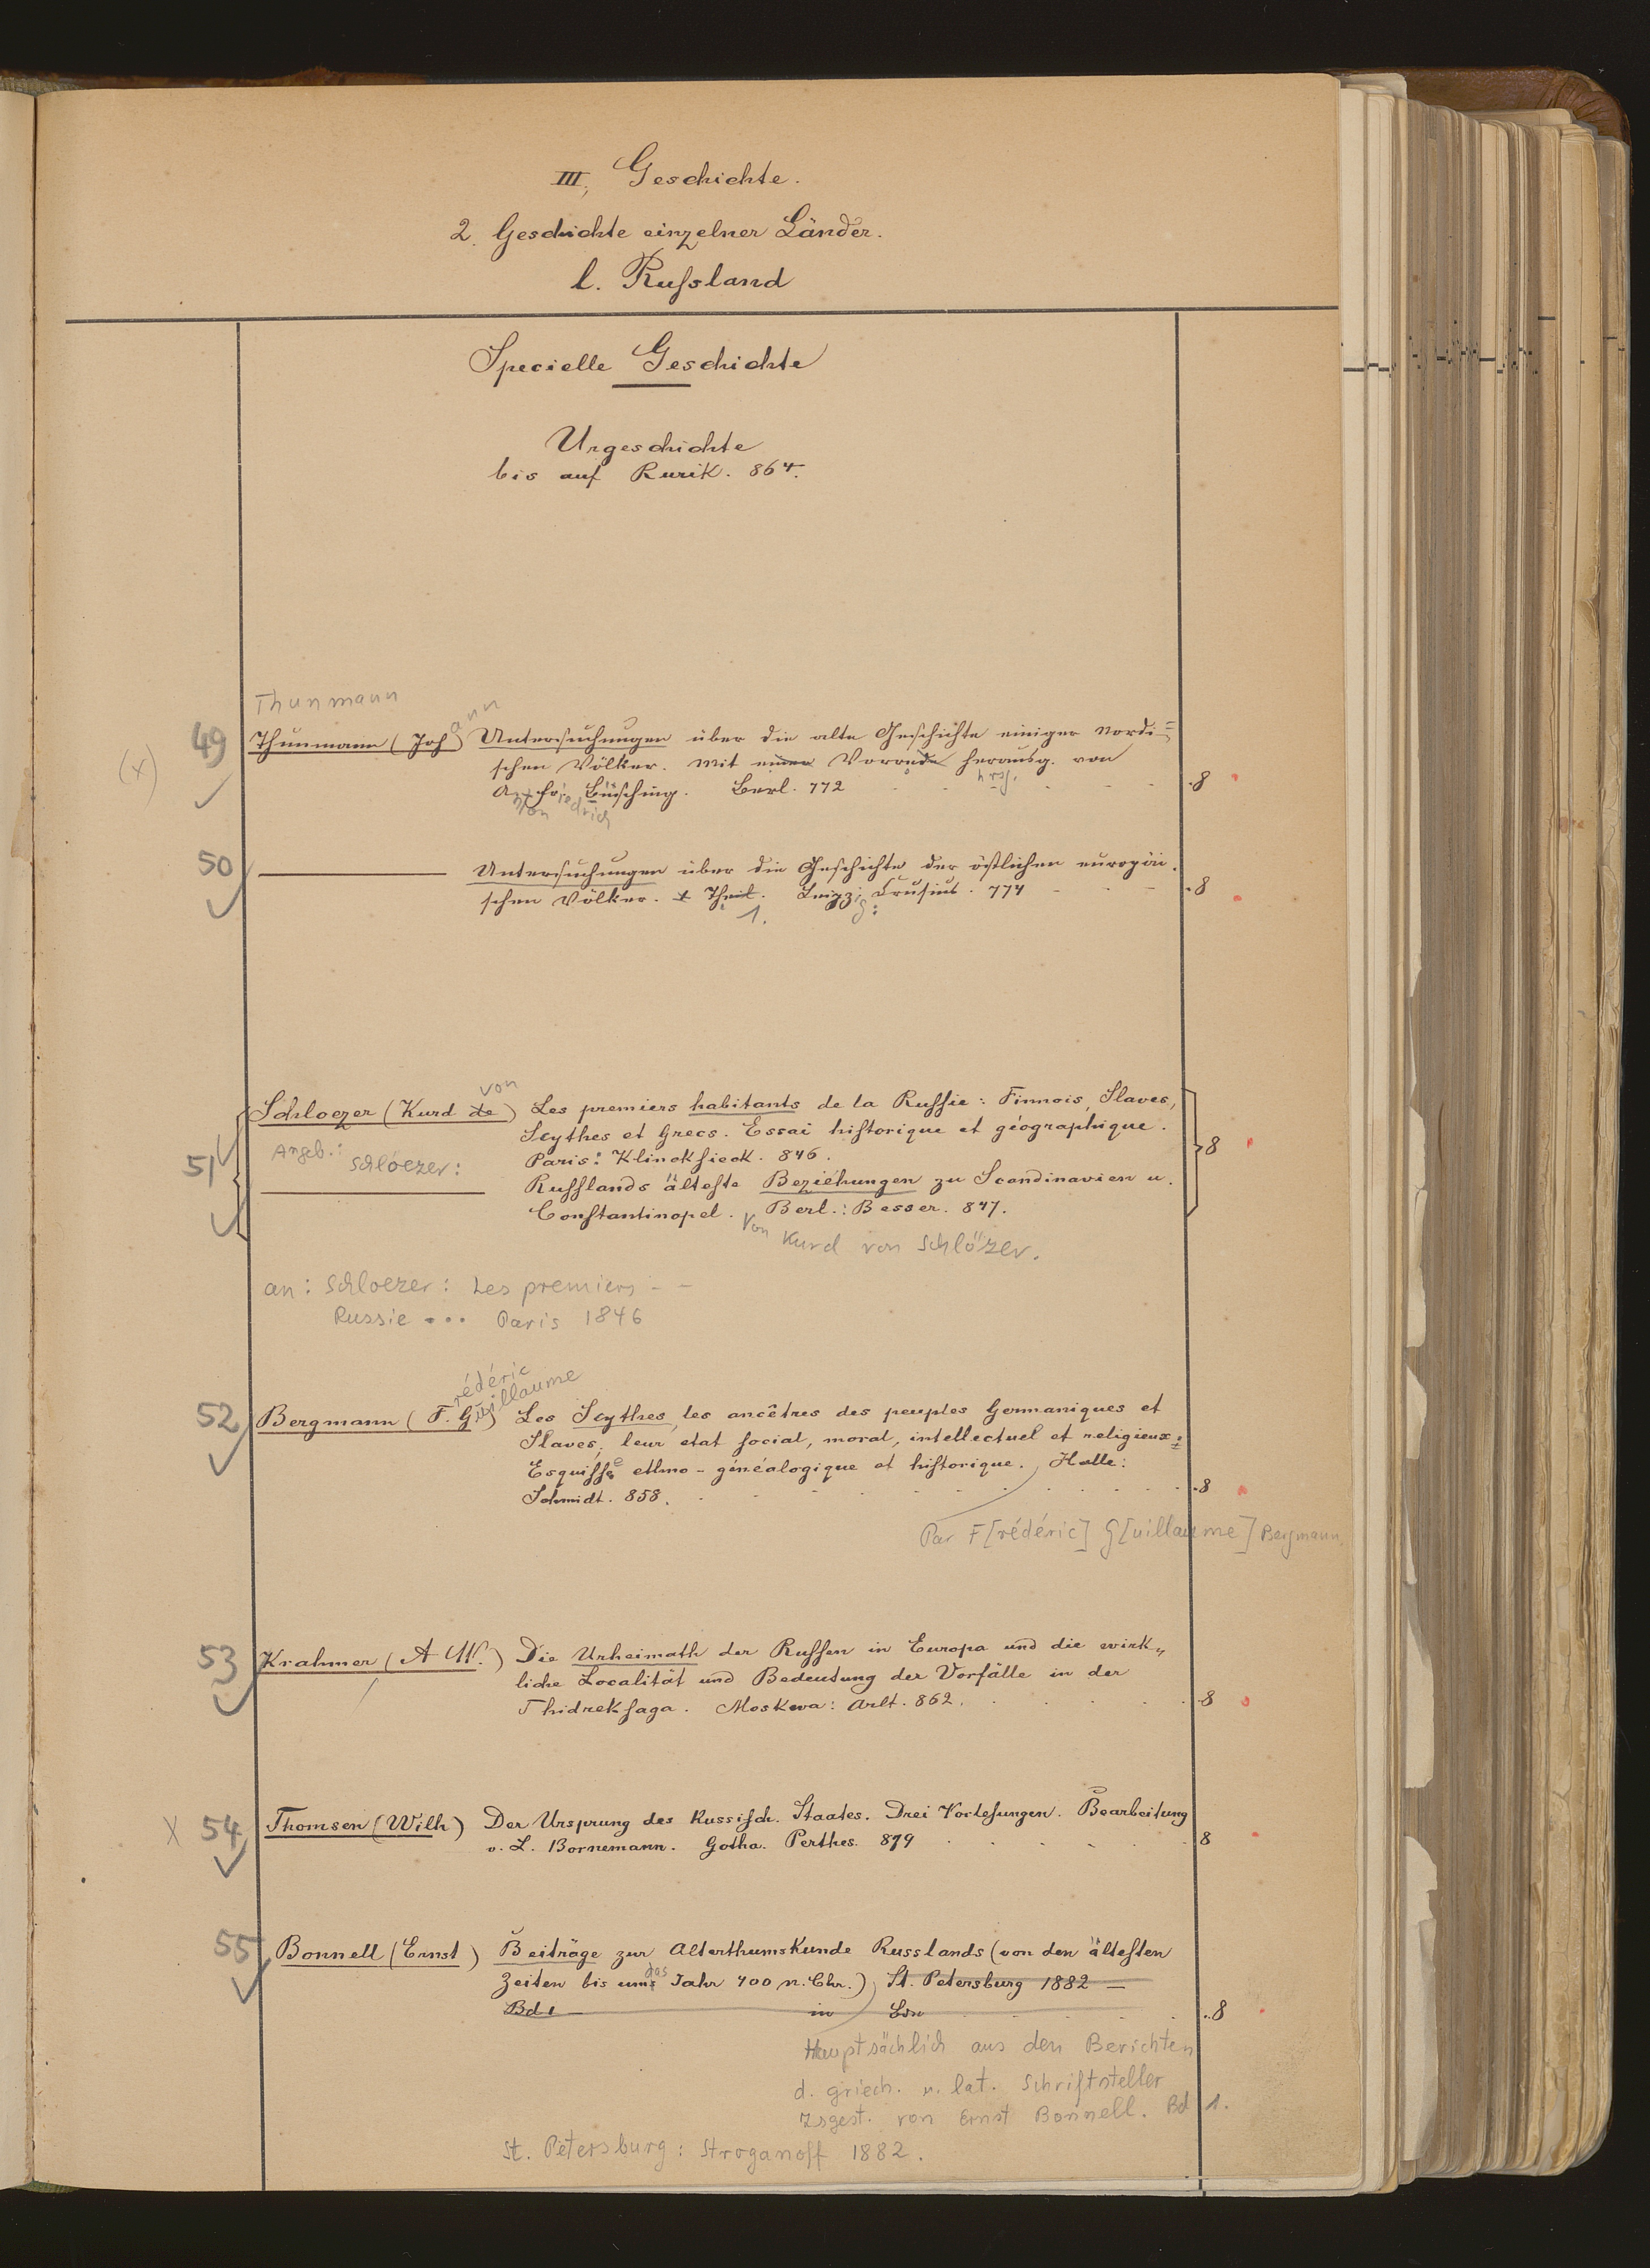 III, Geschichte.
2. Geschichte einzelner Länder.
l. Russland
Specielle Geschichte
Urgeschichte
bis auf Rurik. 864.
Thunmann
(x) 49 Thunmann (Johann) Untersuchungen über die alte Geschichte einiger nordi=
schen Völker. Mit einer Vorrede herausg. von
hrsg.
Anton Friedrich Büsching. Berl. 772 8
50 Untersuchungen über die Geschichte der östlichen europäi.
schen Völker. Theil. Leipzig: Crusius. 774 8
1.
von
Schloezer (Kurd de) Les premiers habitants de la Russie: Finnois, Slaves,
Scythes et Grecs. Essai historique et géographique.
51 Angeb.: Schloezer: Paris: Klincksieck. 846. 8
Russlands älteste Beziehungen zu Scandinavien u.
Constantinopel. Berl.: Besser. 847.
Von Kurd von Schlözer.
an: Schloezer: Les premiers - -
Russie ... Paris 1846
rédéric
uillaume
52 Bergmann (F. G.) Les Scythes, les ancêtres des peuples Germaniques et
Slaves, leur etat social, moral, intellectuel et religieux:
Esquisse ethno-généalogique et historique. Halle:
Schmidt. 858. 8
Par F[rédéric] G[uillaume] Bergmann.
53 Krahmer (A W.) Die Urheimath der Russen in Europa und die wirk„
liche Localität und Bedeutung der Vorfälle in der
Thidreksaga. Moskwa: Arlt. 862. 8
X 54 Thomsen (Wilh) Der Ursprung des Russisch. Staates. Drei Vorlesungen. Bearbeitung
v. L. Bornemann. Gotha. Perthes. 879 8
55 Bonnell (Ernst) Beiträge zur Alterthumskunde Russlands (von den ältesten
das
Zeiten bis ums Jahr 400 n. Chr.) St. Petersburg 1882 —
Bd 1 in 8
Hauptsächlich aus den Berichten
d. griech. u. lat. Schriftsteller
zsgest. von Ernst Bonnell. Bd 1.
St. Petersburg: Stroganoff 1882.